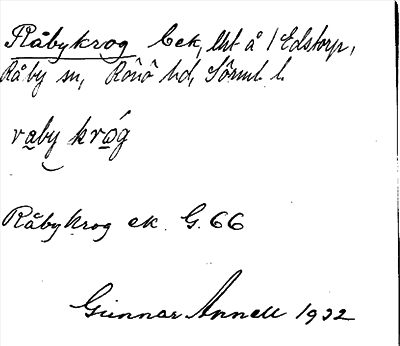 Råbykrog bek, lht å 1 Edstorp,
Råby sn, Rönö hd, Sörml. l.
raby krǿg
Råbykrog ek. G. 66
Gunnar Annell 1932